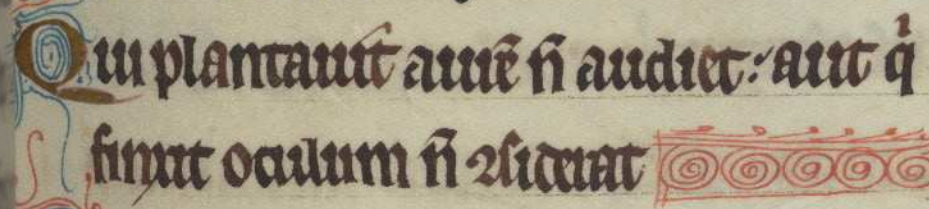 Qui plantauit aurē n̄ audiet: aut qͥ
finxit oculum n̄ ꝯsiderat